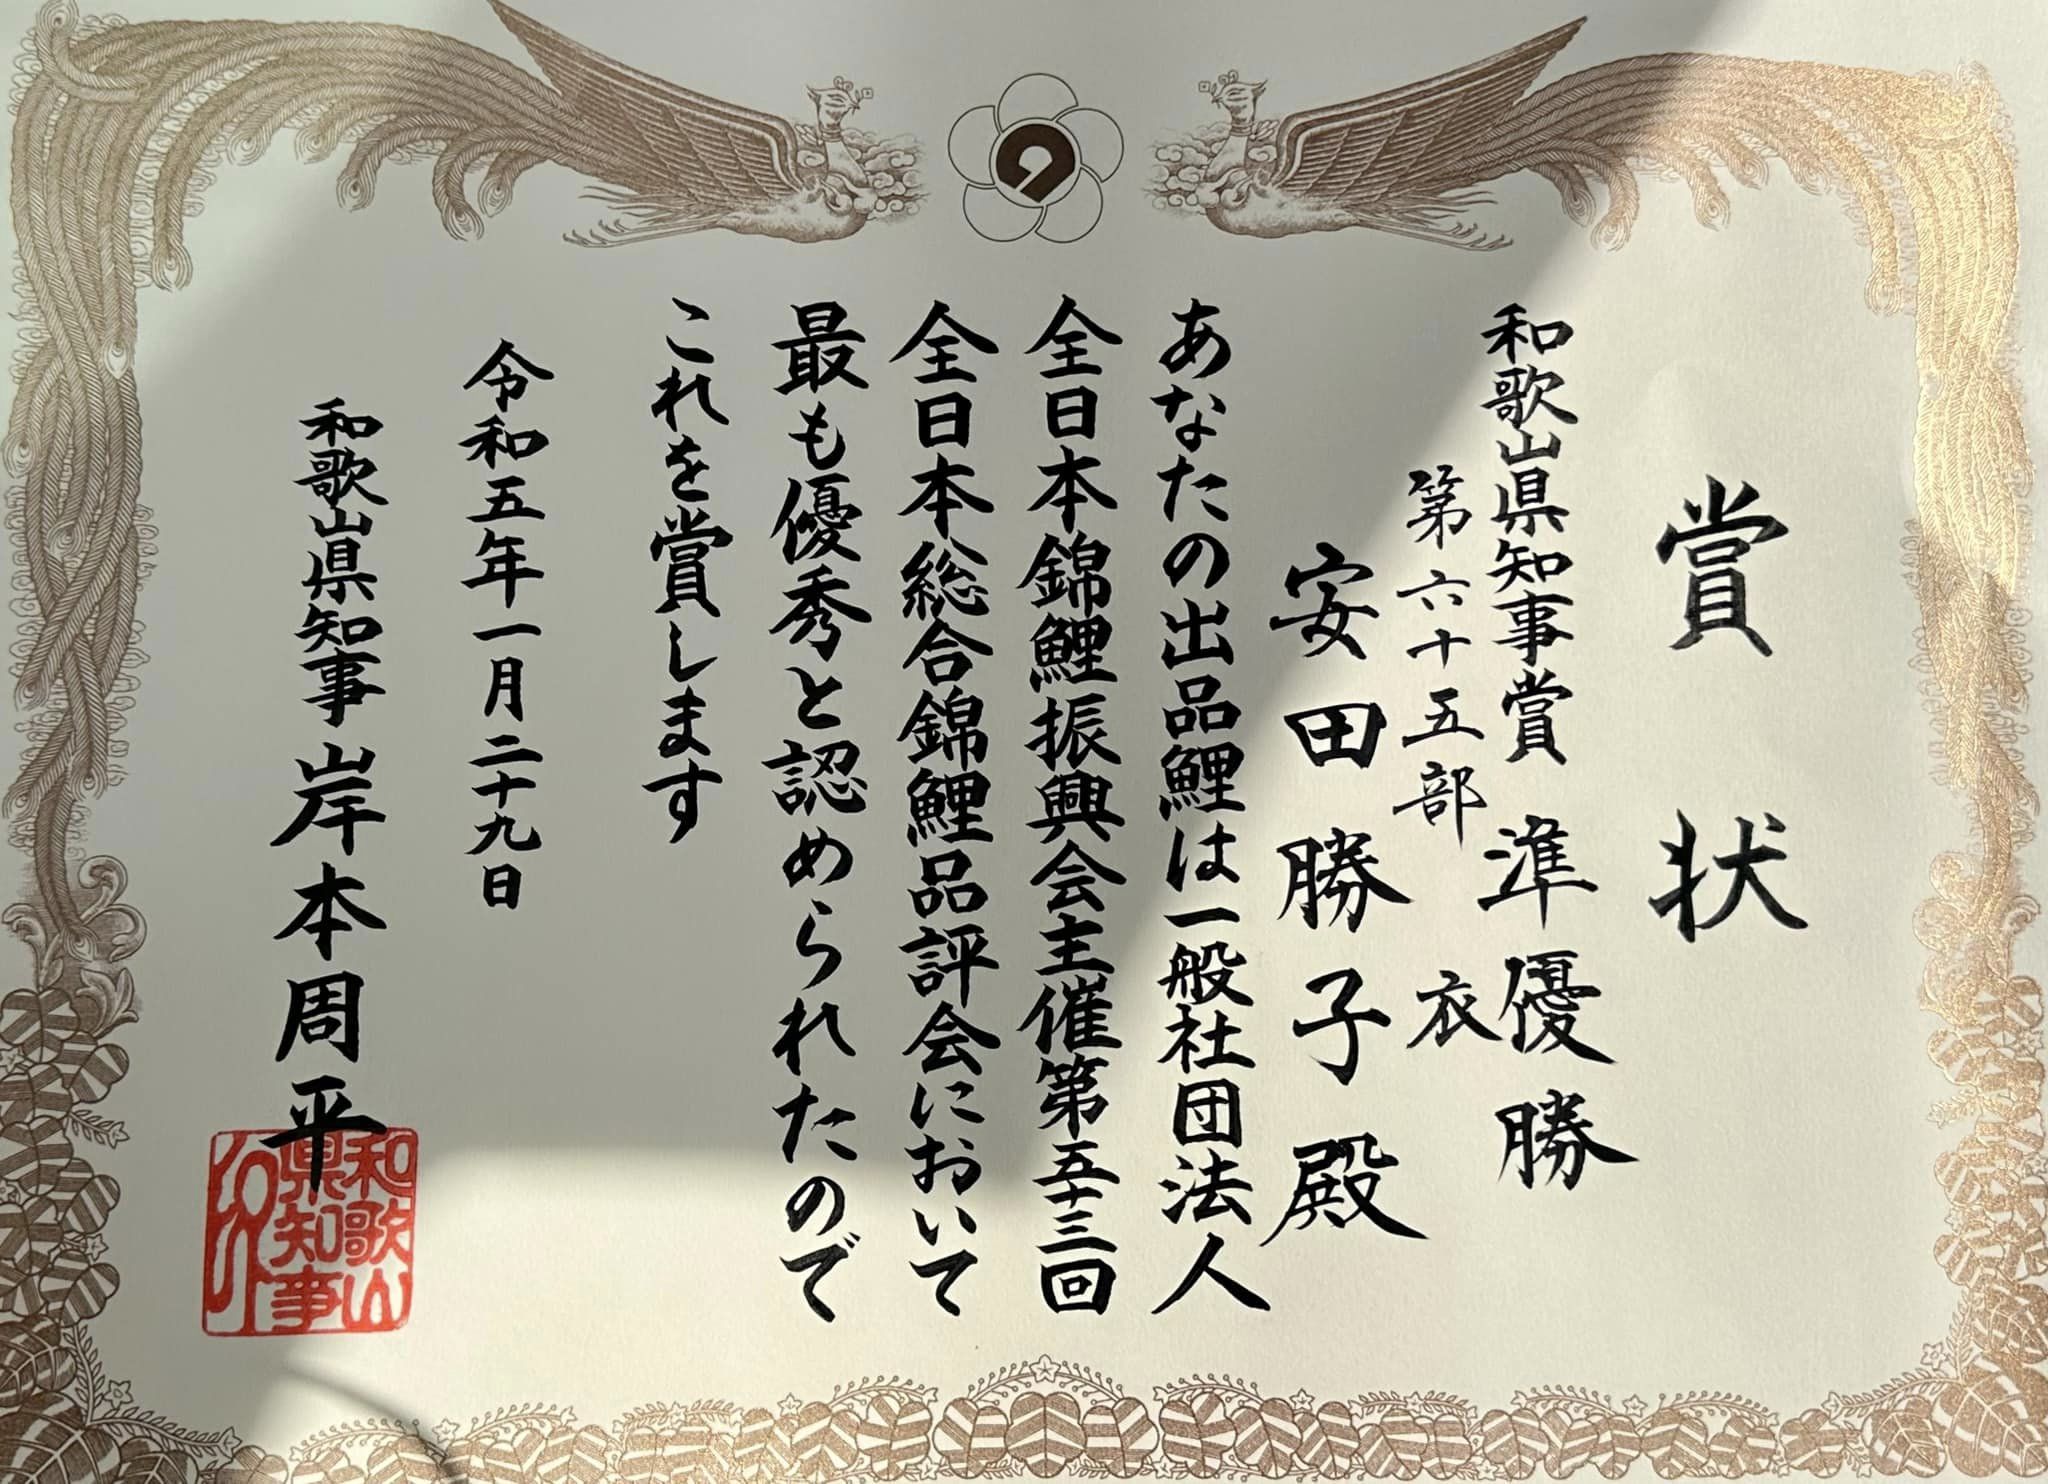 賞状
和歌山県知事賞 準優勝
第六十五部 衣
安田勝子殿
あなたの出品鯉は一般社団法人
全日本錦鯉振興会主催第五十三回
全日本総合錦鯉品評会において
最も優秀と認められたので
これを賞します
令和五年一月二十九日
和歌山県知事 岸本周平
和歌山
県知事
印